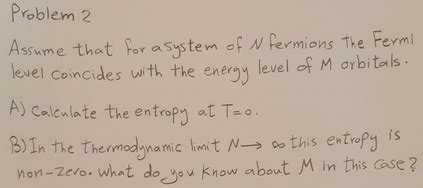 Problem 2
Assume that for a system of N fermions the Fermi
level coincides with the energy level of M orbitals.
A) Calculate the entropy at T=0.
B) In the thermodynamic limit N→∞ this entropy is
non-zero. what do you know about M in this case?